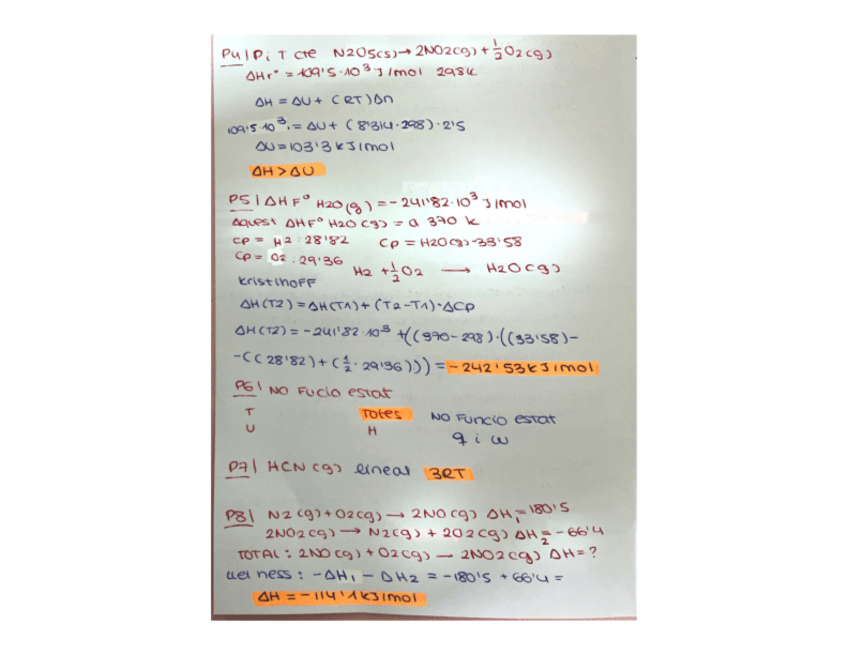 P4| P i T cte N2O5(s) → 2NO2(g) + 1/2 O2(g)
ΔHr° = 109'5·10³ J/mol 298K
ΔH = ΔU + (RT)Δn
109'5·10³ = ΔU + (8'314·298)·2'5
ΔU = 103'3 kJ/mol
ΔH > ΔU
P5| ΔHF° H2O(g) = -241'82·10³ J/mol
Aquest ΔHF° H2O(g) = a 370 K
CP = H2: 28'82 CP = H2O(g) - 33'58
CP = O2: 29'36
H2 + 1/2 O2 → H2O(g)
Kristihoff
ΔH(T2) = ΔH(T1) + (T2-T1)·ΔCp
ΔH(T2) = -241'82·10³ + ((370-298)·((33'58)-
-((28'82)+(1/2·29'36))) = -242'53 kJ/mol
P6| NO Fucio estat
T Totes NO Funcio estat
U H q i w
P7| HCN(g) lineal 3RT
P8| N2(g) + O2(g) → 2NO(g) ΔH1 = 180'5
2NO2(g) → N2(g) + 2O2(g) ΔH2 = -66'4
TOTAL: 2NO(g) + O2(g) — 2NO2(g) ΔH = ?
Llei ness: -ΔH1 - ΔH2 = -180'5 + 66'4 =
ΔH = -114'1 kJ/mol